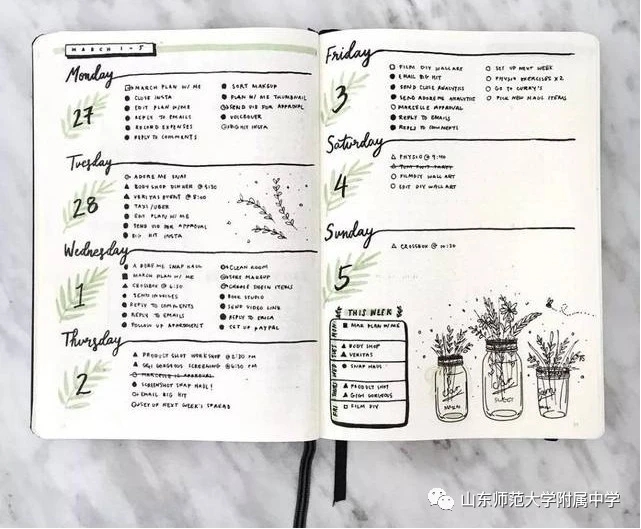 MARCH 1-5
Monday
27
MARCH PLAN W/ ME
CLOSE INSTA
EDIT PLAN W/ME
REPLY TO EMAILS
RECORD EXPENSES
REPLY TO COMMENTS
SORT MAKEUP
PLAN W/ ME THUMBNAIL
SEND VID FOR APPROVAL
VOICEOVER
BIGHIT INSTA
Tuesday
28
ADORE ME SNAP
BODY SHOP DINNER @ 5:30
VERITAS EVENT @ 8:00
TAXI/UBER
EDIT PLAN W/ ME
SEND VID FOR APPROVAL
BIG HIT INSTA
Wednesday
1
ADORE ME SNAP HAUL
MARCH PLAN W/ ME
CROSSBOX @ 6:30
SEND INVOICES
REPLY TO COMMENTS
REPLY TO EMAILS
FOLLOW UP APARTMENT
CLEAN ROOM
SORT MAKEUP
CHOOSE SHEIN ITEMS
BOOK STUDIO
SEND VIDEO LINK
REPLY TO ERICA
SET UP PAYPAL
Thursday
2
PRODUCT SHOT WORKSHOP @ 2:30 PM
GIGI GORGEOUS SCREENING @ 6:30 PM
MARCELLE IG APPROVAL
SCREENSHOT SNAP HAUL!
EMAIL BIG HIT
SET UP NEXT WEEK'S SPREAD
Friday
3
FILM DIY WALL ART
EMAIL BIG HIT
SEND CLOSE ANALYTICS
SEND ADOREME ANALYTICS
MARCELLE APPROVAL
REPLY TO EMAILS
REPLY TO COMMENTS
SET UP NEXT WEEK
PHYSIO EXERCISES X2
GO TO CURRY'S
PICK NEW HAUL ITEMS
Saturday
4
PHYSIO @ 9:40
FILM DIY WALL ART
EDIT DIY WALL ART
Sunday
5
CROSSBOX @ 10:30
THIS WEEK
MON
MAR PLAN W/ME
TUES
BODY SHOP
VERITAS
WED
SNAP HAUL
THURS
PRODUCT SHOT
GIGI GORGEOUS
FRI
FILM DIY
山东师范大学附属中学